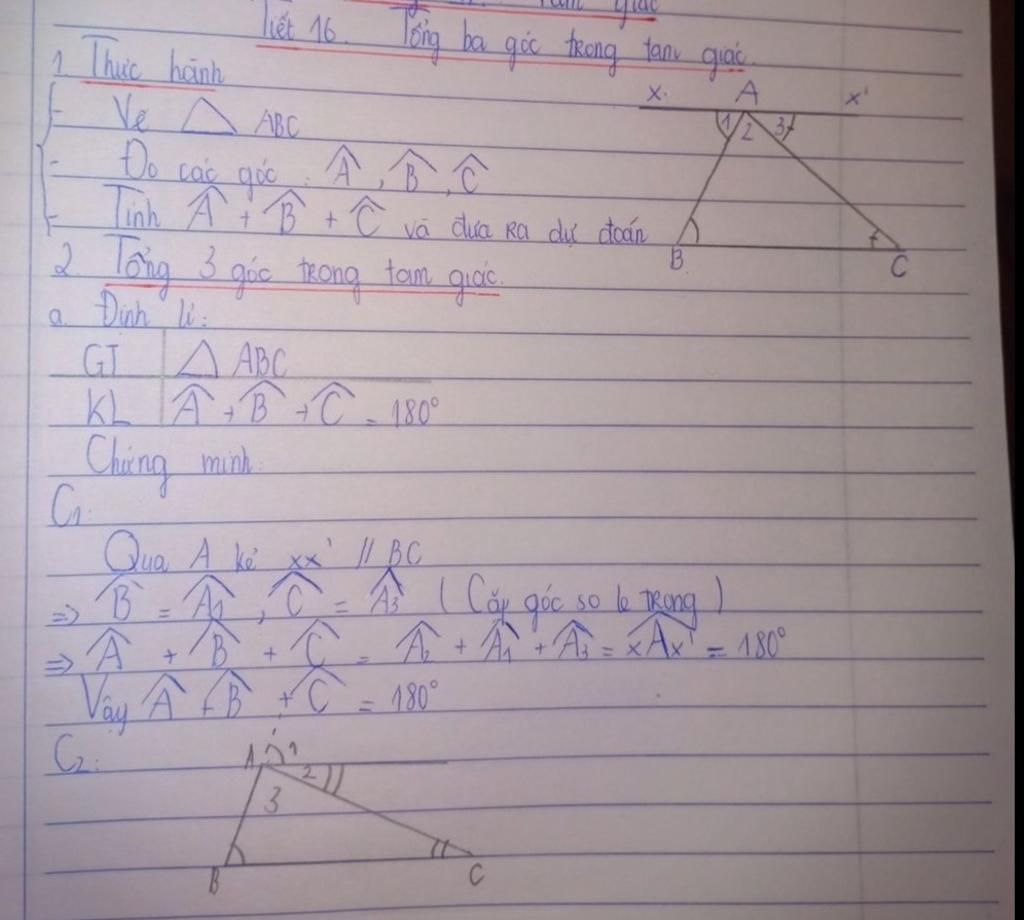 tam giác
Tiết 16. Tổng ba góc trong tam giác.
1. Thực hành
- Vẽ △ ABC
- Đo các góc. Â, B̂, Ĉ
- Tính Â + B̂ + Ĉ và đưa ra dự đoán
x. A x'
1 2 3
B C
2. Tổng 3 góc trong tam giác.
a. Định lí:
GT △ ABC
KL Â + B̂ + Ĉ = 180°
Chứng minh.
C₁:
Qua A kẻ xx' // BC
=> B̂ = Â₁, Ĉ = Â₃ (Cặp góc so le trong)
=> Â + B̂ + Ĉ = Â₂ + Â₁ + Â₃ = xÂx' = 180°
Vậy Â + B̂ + Ĉ = 180°
C₂:
A 1
2
3
B C